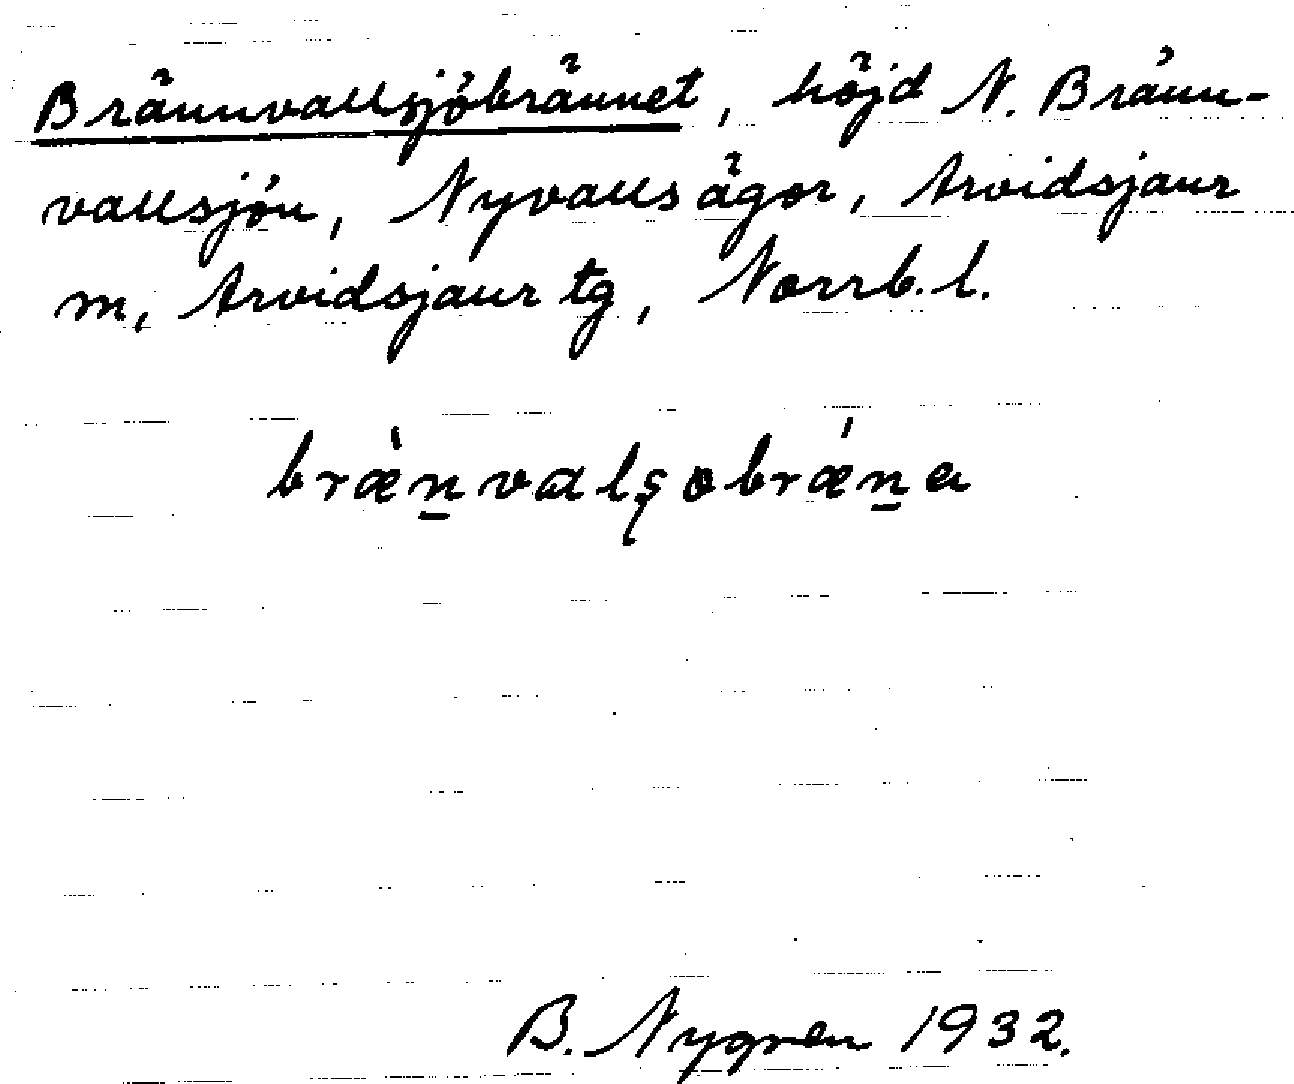 Brännvallsjöbrännet, höjd N. Bränn-
vallsjön, Nyvalls ägor, Arvidsjaur
m, Arvidsjaur tg, Norrb. l.
bræ̀n̲valʂobrǽn̲a
B. Nygren 1932.